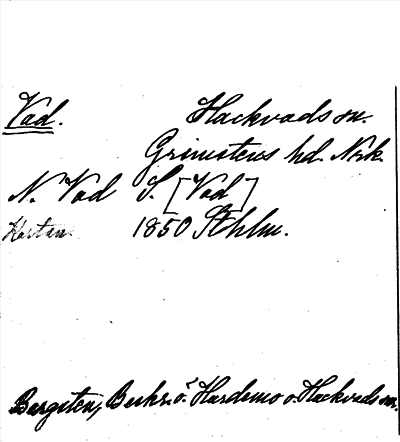 Vad. Hackvads sn.
Grimstens hd. Nrk.
N. Vad S. [Vad]
Kartan. 1850 Sthlm.
Bergsten, Beskr. ö. Hardemo o. Hackvads sn.